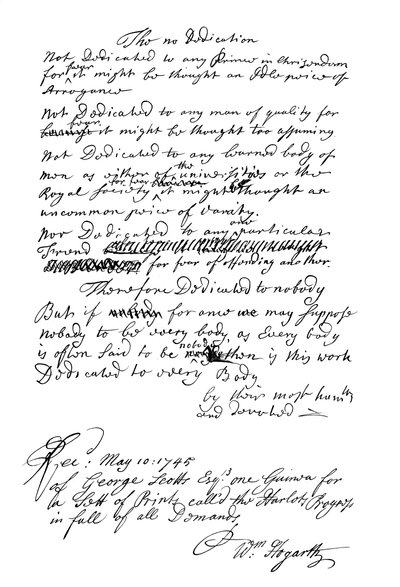 The no Dedication
Not Dedicated to any Prince in Christendom
for fear it might be thought an Idle peice of
Arrogance
Not Dedicated to any man of quality for
fear it might be thought too assuming
Not Dedicated to any learned body of
men as either of the universitys or the
Royal Society for fear it might be thought an
uncommon peice of vanity.
Nor Dedicated to any one particular
Friend
for fear of offending another.
Therefore Dedicated to nobody
But if for once we may suppose
nobody to be every body, as Every body
is often said to be nobody then is this work
Dedicated to every Body
by their most humble
and devoted
Rec: May 10: 1745
of George Scotts Esqr. one Guinea for
a Sett of Prints call'd the Harlots Progress
in full of all Demands
Wm. Hogarth